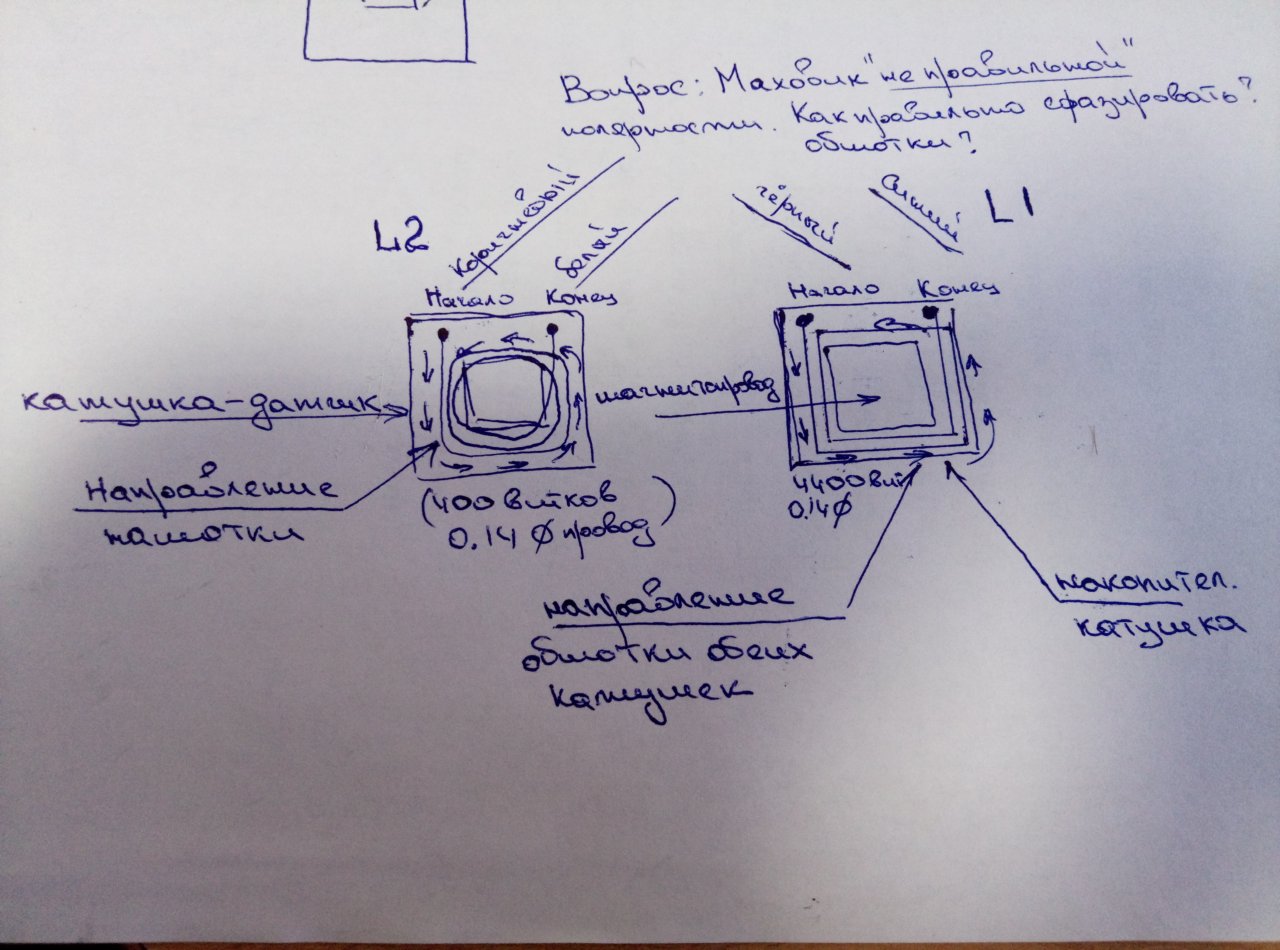 Вопрос: Маховик "не правильной"
полярности. Как правильно сфазировать
обмотки?
L2
коричневый
белый
чёрный
синий
L1
Начало Конец
Начало Конец
катушка-датчик
магнитопровод
Направление
намотки
(400 витков
0.14 Ø провод)
4400 вит
0.14 Ø
направление
обмотки обеих
катушек
накопител.
катушка